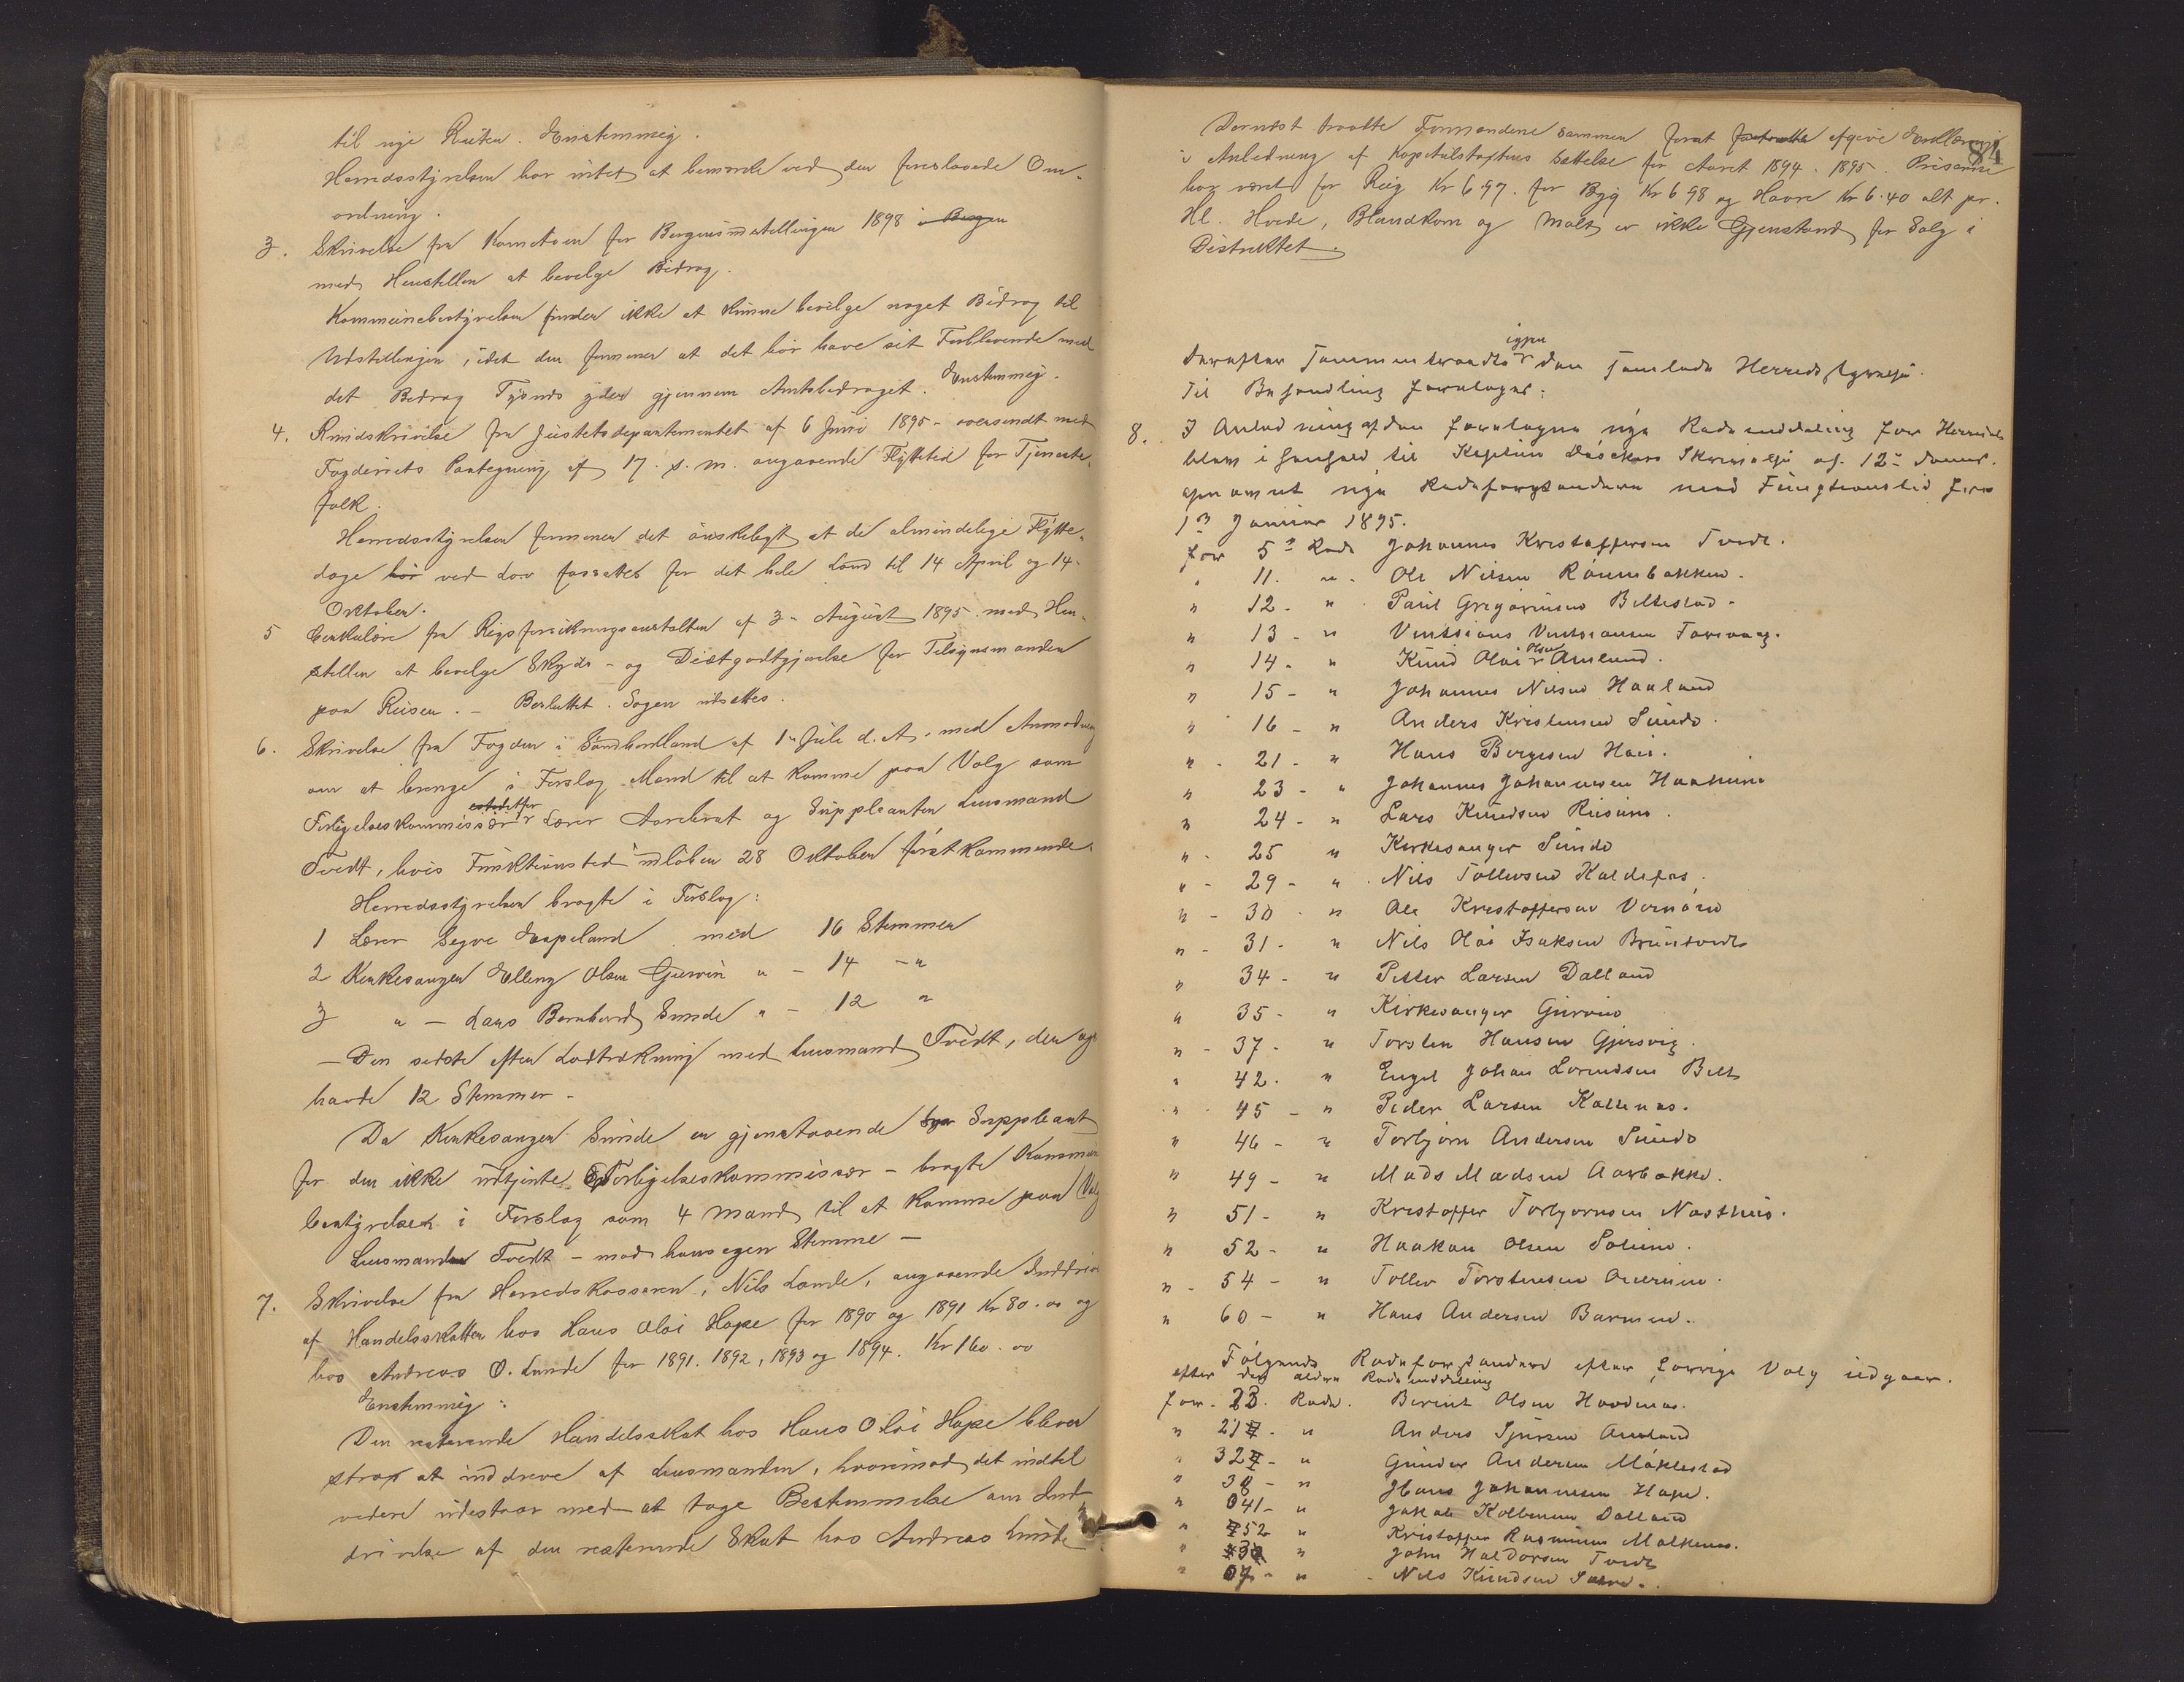 til nye Ruten. Enstemmig.
Herredsstyrelsen har intet at bemærke ved den foreslaaede Om-
ordning.
3. Skrivelse fra Komiteen for Bergensudstillingen 1898 i Bergen
med Henstillen at bevilge Bidrag.
Kommunebestyrelsen finder ikke at kunne bevilge noget Bidrag til
Udstillingen, idet den formener at det bør have sit Forblivende med
det Bidrag Tysnes yder gjennem Amtsbidraget. Enstemmig.
4. Rundskrivelse fra Justitsdepartementet af 6 Juni 1895 - oversendt med
Fogderiets Paategning af 17. s. m. angaaende Flyttetid for Tjeneste-
folk.
Herredsstyrelsen formener det ønskeligt at de almindelige Flytte-
dage bør ved Lov fassættes for det hele Land til 14 April og 14-
Oktober.
5 Cirkulære fra Rigsforsikringsanstalten af 3- August 1895 med Hen-
stillen at bevilge Skyds- og Diætgodtgjørelse for Tilsynsmanden
paa Reisen. - Besluttet. Sagen udsættes.
6. Skrivelse fra Fogden i Søndhordland af 1- Juli d. A. med Anmodning
om at bringe i Forslag Mænd til at komme paa Valg som
Forligelseskommissær istedetfor Lærer Aarebrot og Suppleanten Lensmand
Tvedt, hvis Funktionstid udløber 28 Oktober førstkommende.
Herredsstyrelsen bragte i Forslag:
1 Lærer Segve Espeland med 16 Stemmer
2 Kirkesanger Elling Olsen Gjerøin " - 14 - "
3 " - Lars Bernhard Sunde " - 12 "
- Den sidste efter Lodtrækning med Lensmand Tvedt, der og
havde 12 Stemmer -
Da Kirkesanger Sunde er gjenstaaende Suppleant
for den ikke udtjente Forligelseskommissær - bragte Kommune
bestyrelsen i Forslag som 4 Mand til at komme paa Valg
Lensmanden Tvedt - mod hans egen Stemme -
7. Skrivelse fra Herredskassereren, Nils Lande, angaaende Inddrivelse
af Handelsskatten hos Hans Olai Hope for 1890 og 1891 Kr 80.00 og
hos Andreas O. Lunde for 1891. 1892, 1893 og 1894. Kr 160.00
Enstemmig:
Den resterende Handelsskat hos Hans Olai Hope bliver
strax at inddrive af Lensmanden, hvorimod det indtil
videre udestaar med at tage Bestemmelse om Ind-
drivelse af den resterende Skat hos Andreas Lunde
84
Dernæst traadte Formændene sammen forat afgive Erklæring
i Anledning af Kapitelstaxtens Sættelse for Aaret 1894-1895. Priserne
har været for Rug Kr 6.97. for Byg Kr 6 98 og Havre Kr 6.40 alt pr.
Hl. Hvede, Blandkorn og Malt er ikke Gjenstand for Salg i
Distriktet.
Derefter sammentraadte igjen den samlede Herredsstyrelse.
Til Behandling forelagdes:
8. I Anledning af den foretagne nye Rodeinddeling for Herredet
blev i Henhold til Kaptein Skrivelse af 12- dennes
opnævnt nye Rodeforstandere med Funktionstid fra
1 Januar 1895.
for 5 Rode Johannes Kristoffersen Tvedt.
" 11. " Ole Nilsen Rønnebakken.
" 12 - " Paul Gregoriusen Beltestad.
" 13 - " Vintsians Vintsiansen Farevaag.
" 14 - " Knud Olai Olsen Amlund.
" 15 - " Johannes Nilsen Haaland
" 16 - " Anders Kristensen Sunde.
" - 21 - " Hans Børgesen Høie.
" 23 - " Johannes Johannesen Haaheim
" 24 - " Lars Knudsen Riisum.
" - 25 " Kirkesanger Sunde
" - 29 - " Nils Tollevsen Kaldefos.
" - 30 - " Ole Kristoffersen Vernøen
" - 31 - " Nils Olai Isaksen Bruntvedt
" 34 - " Petter Larsen Dalland
" 35 - " Kirkesanger Gjerøin
" - 37 - " Torsten Hansen Gjersvig.
" 42. " Engel Johan Lorendsen Belt
" 45 - " Peder Larsen Kallenes.
" 46 - " Torbjørn Andersen Sunde
" 49 - " Mads Madsen Aarbakke.
" 51 - " Kristoffer Torbjørnsen Næsthus.
" 52 - " Haakon Olsen Solum.
" - 54 - " Tollev Torstensen Onereim.
" 60 - " Hans Andersen Barmen.
Følgende Rodeforstandere efter forrige Valg udgaar.
efter den ældre Rodeinddeling
for. 23. Rode. Berent Olsen Hovdenes.
" 21 - " Anders Sjursen Amland
" 32 - " Gunder Andersen Møklestad
" 38 - " Hans Johannesen Hope.
" 41 - " Jakob Kolbensen Dalland
" 52 " Kristoffer Rasmusen Malkenes.
" " John Haldorsen Tvedt
" - " - Nils Knudsen